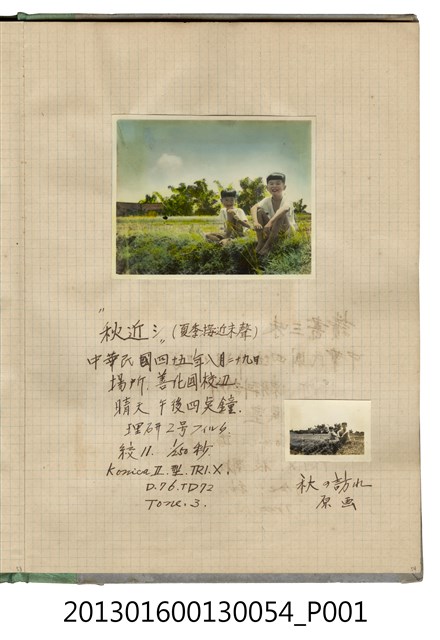 "秋近シ" (夏季接近末聲)
中華民國四十五年八月二十九日
場所、善化國校Ⅱ
晴天 午後四点鐘
理研2号フィルム
絞11. 1/250秒
KonicaⅡ.型.TRI.X.
D.76.TD72
Tone.3.
秋の訪れ
原画
201301600130054_P001